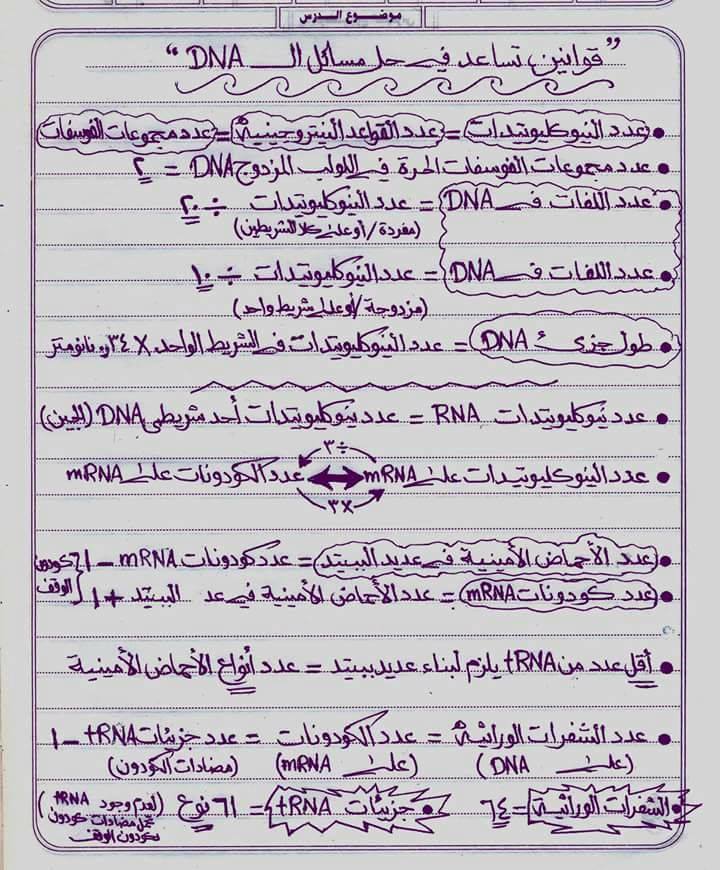 موضوع الدرس
"قوانين تساعد في حل مسائل الـ DNA"
• عدد النيوكليوتيدات = عدد القواعد النيتروجينية = عدد مجموعات الفوسفات
• عدد مجموعات الفوسفات الحرة في اللولب المزدوج DNA = ٢
• عدد اللفات في DNA = عدد النيوكليوتيدات ÷ ٢٠
(مفردة / أو على كلا الشريطين)
• عدد اللفات في DNA = عدد النيوكليوتيدات ÷ ١٠
(مزدوجة / أو على شريط واحد)
• طول جزئ DNA = عدد النيوكليوتيدات في الشريط الواحد × ٣٤,٠ نانومتر
• عدد نيوكليوتيدات RNA = عدد نيوكليوتيدات أحد شريطى DNA (الجين)
÷٣
• عدد النيوكليوتيدات على mRNA ↔ عدد الكودونات على mRNA
×٣
• عدد الأحماض الأمينية في عديد الببتيد = عدد كودونات mRNA – ١ } كودون
• عدد كودونات mRNA = عدد الأحماض الأمينية في عد الببتيد + ١ } الوقف
• أقل عدد من tRNA يلزم لبناء عديد ببتيد = عدد أنواع الأحماض الأمينية
• عدد الشفرات الوراثية = عدد الكودونات = عدد جزيئات tRNA – ١
(على DNA) (على mRNA) (مضادات الكودون)
• الشفرات الوراثية = ٦٤ • جزيئات tRNA = ٦١ نوع (لعدم وجود tRNA
تحمل مضادات كودون
لكودون الوقف)